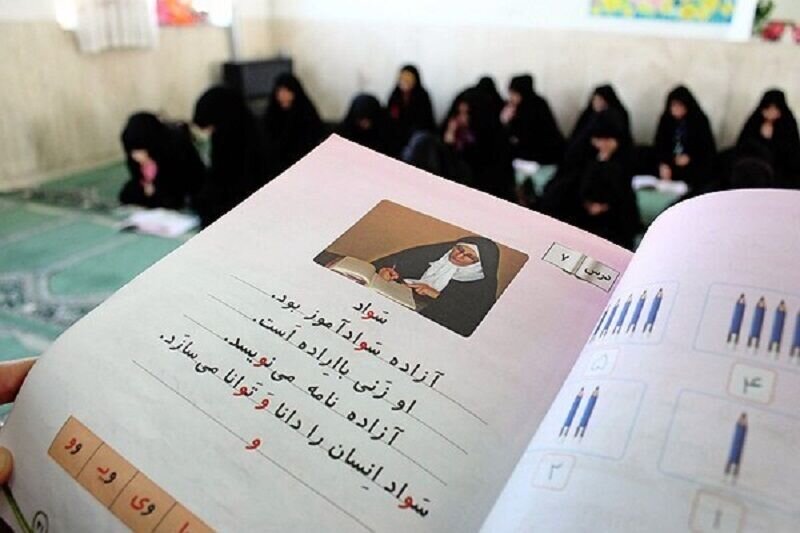 درس ۷
سَواد
آزاده سَوادآموز بود.
او زَنی بااِراده اَست.
آزاده نامه می‌نویسَد.
سَواد اِنسان را دانا وَ تَوانا می‌سازَد.
و
وو ویـ وی
۴ ۵
۱ ۲